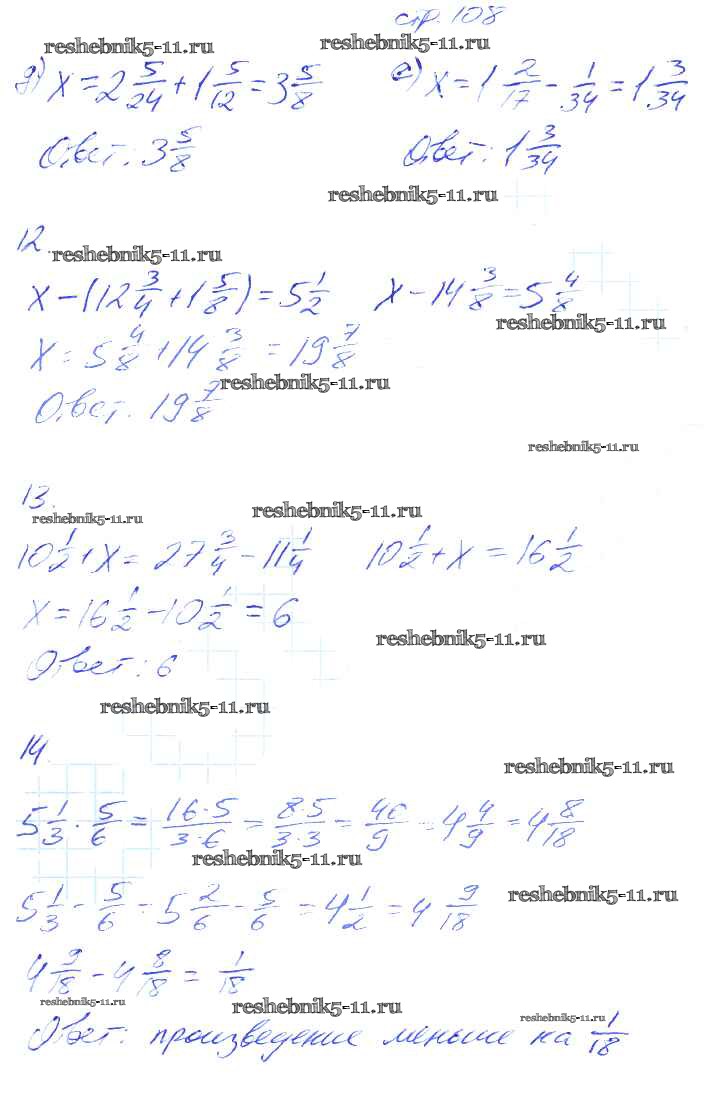 стр. 108
reshebnik5-11.ru reshebnik5-11.ru
д) x = 2 5/24 + 1 5/12 = 3 5/8 е) x = 1 2/17 - 1/34 = 1 3/34
Ответ: 3 5/8 Ответ: 1 3/34
reshebnik5-11.ru
12. reshebnik5-11.ru
x - (12 3/4 + 1 5/8) = 5 1/2 x - 14 3/8 = 5 4/8
reshebnik5-11.ru
x = 5 4/8 + 14 3/8 = 19 7/8
reshebnik5-11.ru
Ответ. 19 7/8
reshebnik5-11.ru
13.
reshebnik5-11.ru reshebnik5-11.ru
10 1/2 + x = 27 3/4 - 11 1/4 10 1/2 + x = 16 1/2
x = 16 1/2 - 10 1/2 = 6
reshebnik5-11.ru
Ответ: 6
reshebnik5-11.ru
14.
reshebnik5-11.ru
5 1/3 · 5/6 = 16·5/3·6 = 8·5/3·3 = 40/9 = 4 4/9 = 4 8/18
reshebnik5-11.ru
5 1/3 - 5/6 = 5 2/6 - 5/6 = 4 1/2 = 4 9/18
reshebnik5-11.ru
4 9/18 - 4 8/18 = 1/18
reshebnik5-11.ru reshebnik5-11.ru reshebnik5-11.ru
Ответ: произведение меньше на 1/18